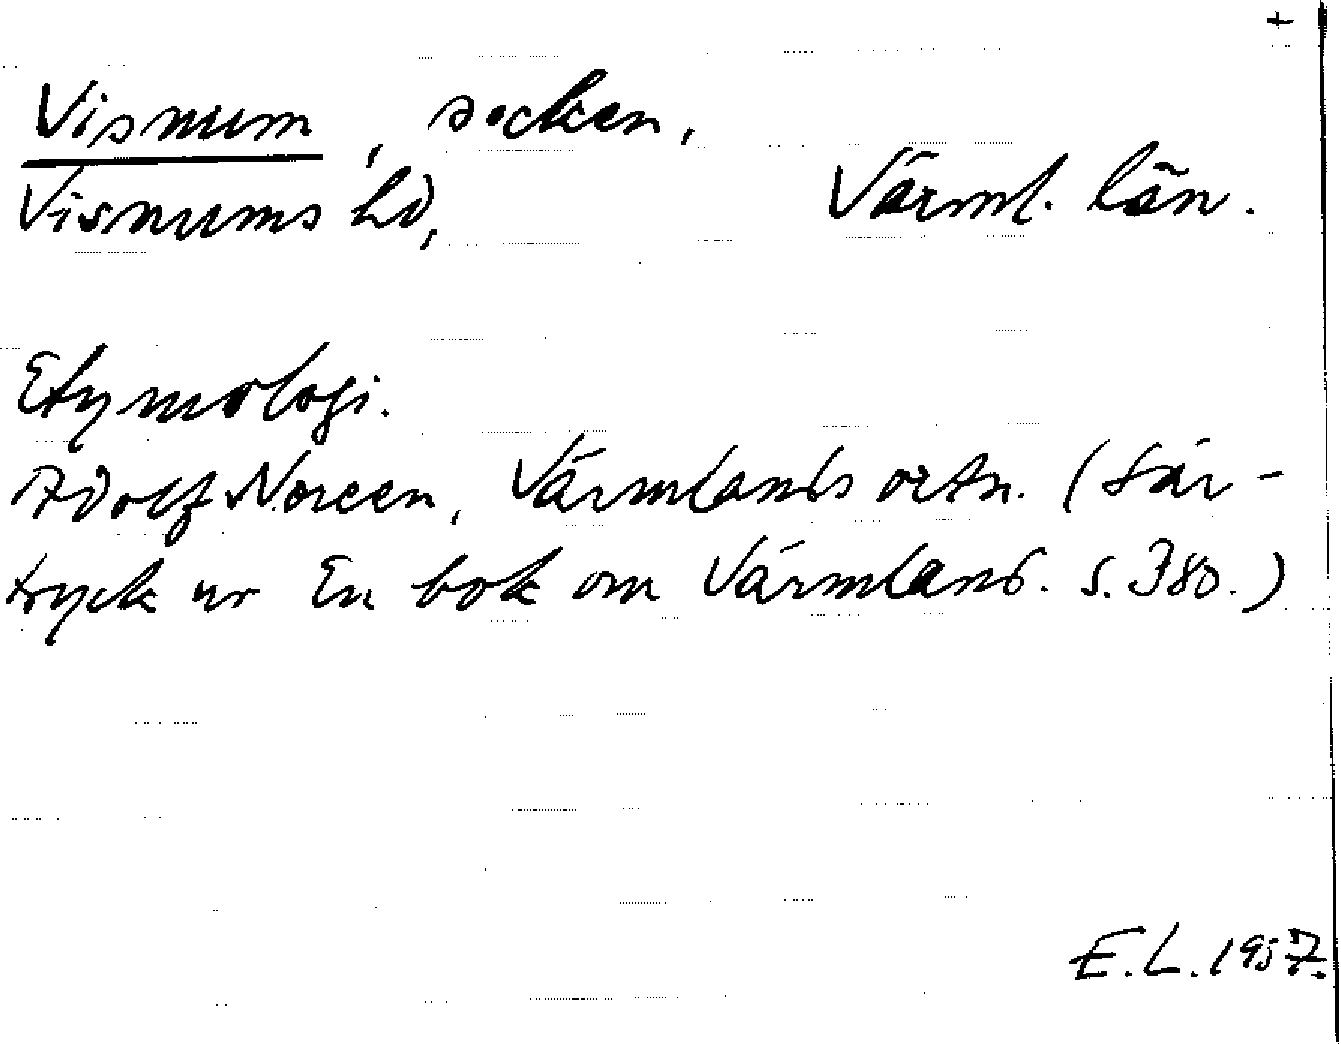 +
Visnum, socken,
Visnums hd, Värml. län.
Etymologi.
Adolf Noreen, Värmlands ortn. (Sär-
tryck ur En bok om Värmland. S. 380.)
E.L. 1957.